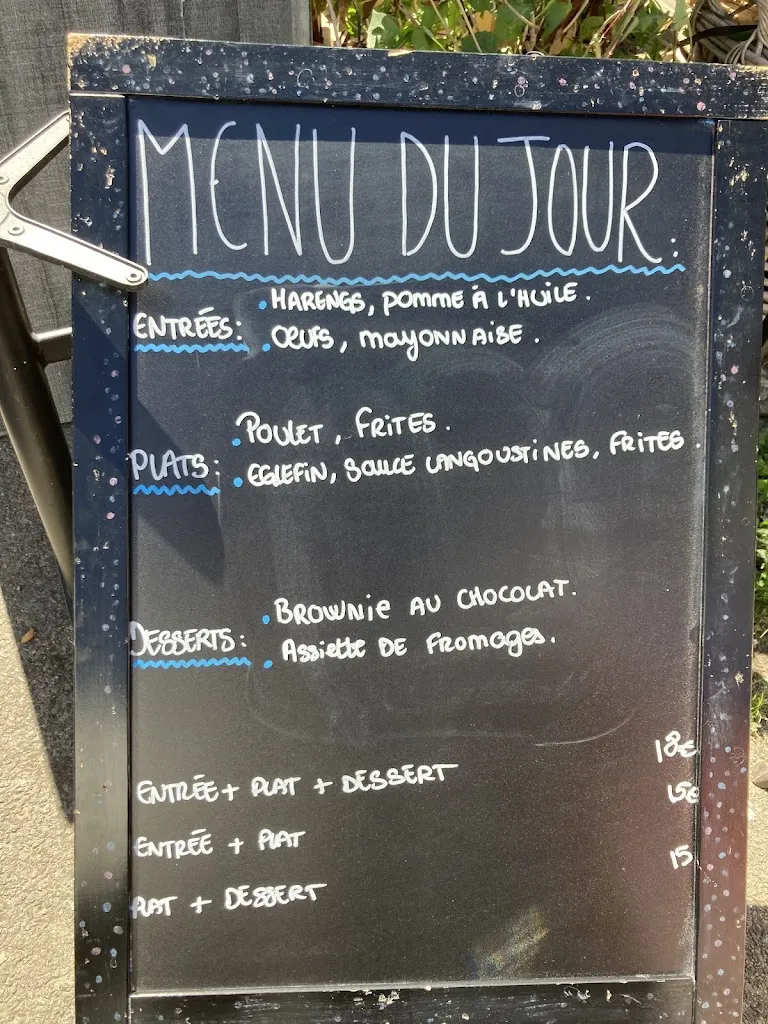 MENU DU JOUR:
ENTRÉES: . HARENGS, POMME À L'HUILE.
. ŒUFS, MAYONNAISE.
PLATS: . POULET, FRITES.
. EGLEFIN, SAUCE LANGOUSTINES, FRITES.
DESSERTS: . BROWNIE AU CHOCOLAT.
. Assiette DE FROMAGES.
ENTRÉE + PLAT + DESSERT 18€
ENTRÉE + PLAT 15€
PLAT + DESSERT 15